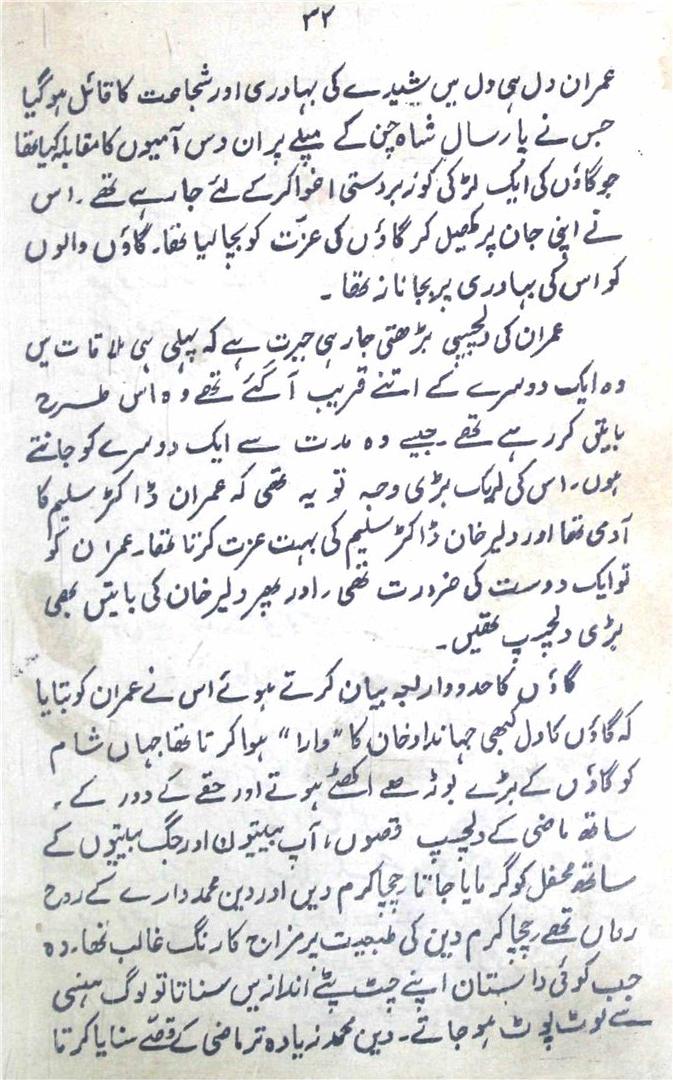 ۳۲
عمران دل ہی دل میں شیدے کی بہادری اور شجاعت کا قائل ہو گیا
جس نے پار سال شاہ جن کے میلے پر ان دس آمیوں کا مقابلہ کیا تھا
جو گاؤں کی ایک لڑکی کو زبردستی اغوا کر کے لئے جا رہے تھے۔ اس
نے اپنی جان پر کھیل کر گاؤں کی عزّت کو بچا لیا تھا۔ گاؤں والوں
کو اس کی بہادری پر بجا ناز تھا۔
عمران کی دلچسپی بڑھتی جا رہی حیرت ہے کہ پہلی ہی ملاقات میں
وہ ایک دوسرے کے اتنے قریب آ گئے تھے وہ اس طرح
باتیں کر رہے تھے۔ جیسے وہ مدت سے ایک دوسرے کو جانتے
ہوں۔ اس کی ایک بڑی وجہ تو یہ تھی کہ عمران ڈاکٹر سلیم کا
آدمی تھا اور دلیر خان ڈاکٹر سلیم کی بہت عزت کرتا تھا۔ عمران کو
تو ایک دوست کی ضرورت تھی، اور پھر دلیر خان کی باتیں بھی
بڑی دلچسپ تھیں۔
گاؤں کا حدود اربعہ بیان کرتے ہوئے اس نے عمران کو بتایا
کہ گاؤں کا دل کبھی جہانداد خان کا "دارا" ہوا کرتا تھا جہاں شام
کو گاؤں کے بڑے بوڑھے اکٹھے ہوتے اور حقے کے دور کے۔
ساتھ ماضی کے دلچسپ قصوں، آپ بیتیوں اور جگ بیتیوں کے
ساتھ محفل کو گرمایا جاتا چچا کرم دین اور دین محمد دارے کے روح
رواں تھے، چچا کرم دین کی طبیعت پر مزاح کا رنگ غالب تھا۔ وہ
جب کوئی داستان اپنے چٹ پٹے انداز میں سناتا تو لوگ ہنسی
سے لوٹ پوٹ ہو جاتے۔ دین محمد زیادہ تر ماضی کے قصّے سنایا کرتا